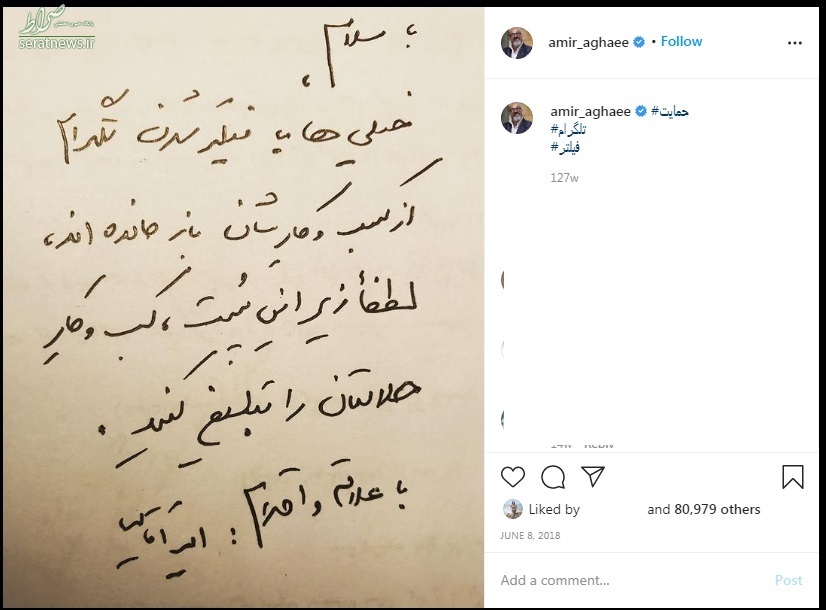 صراط
seratnews.ir
با سلام،
خیلی ها با فیلتر شدن تلگرام
از کسب و کارشان باز مانده اند،
لطفاً زیر این پُست، کسب و کارِ
حلالتان را تبلیغ کنید.
با علاقه و احترام : امیر آقایی
amir_aghaee • Follow
amir_aghaee #حمایت
#تلگرام
#فیلتر
127w
Liked by and 80,979 others
JUNE 8, 2018
Add a comment...
Post